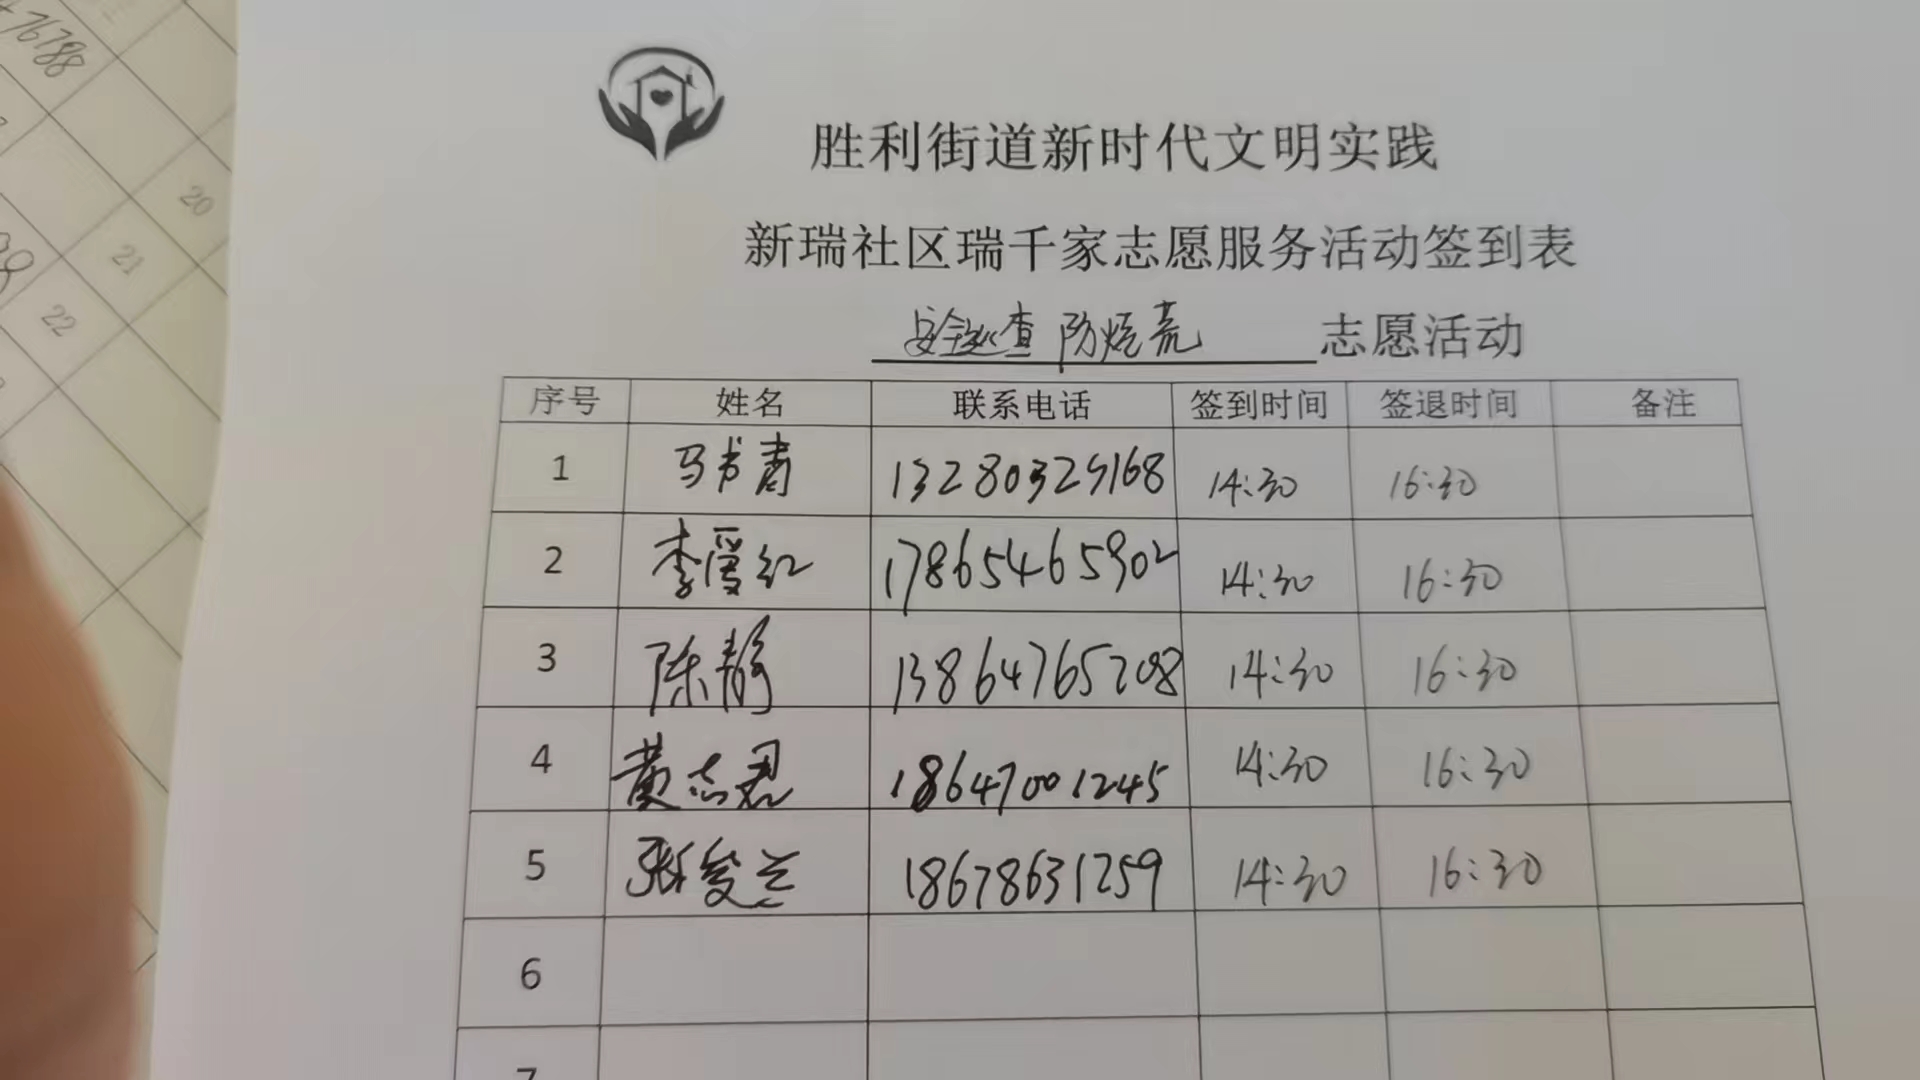 胜利街道新时代文明实践
新瑞社区瑞千家志愿服务活动签到表
安全巡查 防烧荒 志愿活动
序号 姓名 联系电话 签到时间 签退时间 备注
1 马书青 13280325168 14:30 16:30
2 李爱红 17865465902 14:30 16:30
3 陈静 13864765208 14:30 16:30
4 黄志君 18647001245 14:30 16:30
5 张俊兰 18678631259 14:30 16:30
6
7
76788
20
21
22